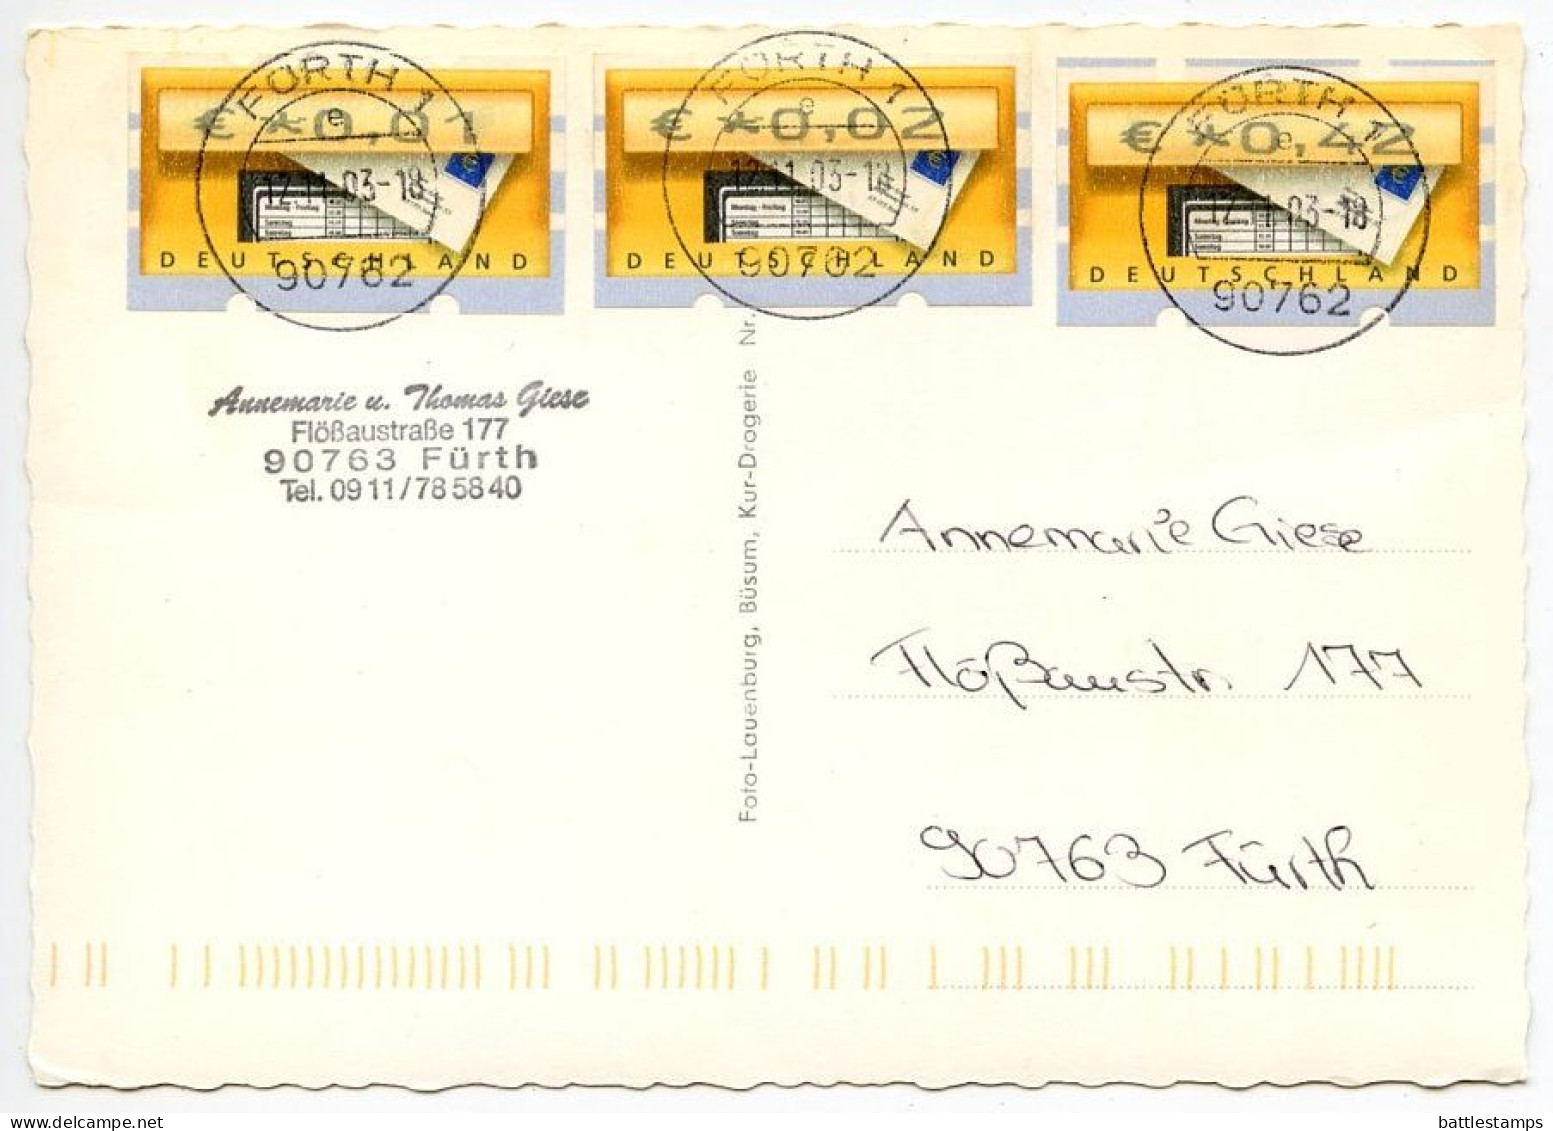 FÜRTH 1
€ *0,01
e
12.11.03-18
DEUTSCHLAND
90762
FÜRTH 1
€ *0,02
e
12.11.03-18
Montag - Freitag
Samstag
Sonntag
DEUTSCHLAND
90762
FÜRTH 1
€ *0,42
e
12.11.03-18
DEUTSCHLAND
90762
Annemarie u. Thomas Giese
Flößaustraße 177
90763 Fürth
Tel. 09 11 / 78 58 40
Foto-Lauenburg, Büsum, Kur-Drogerie Nr.
Annemarie Giese
Flößaustr. 177
90763 Fürth
battlestamps